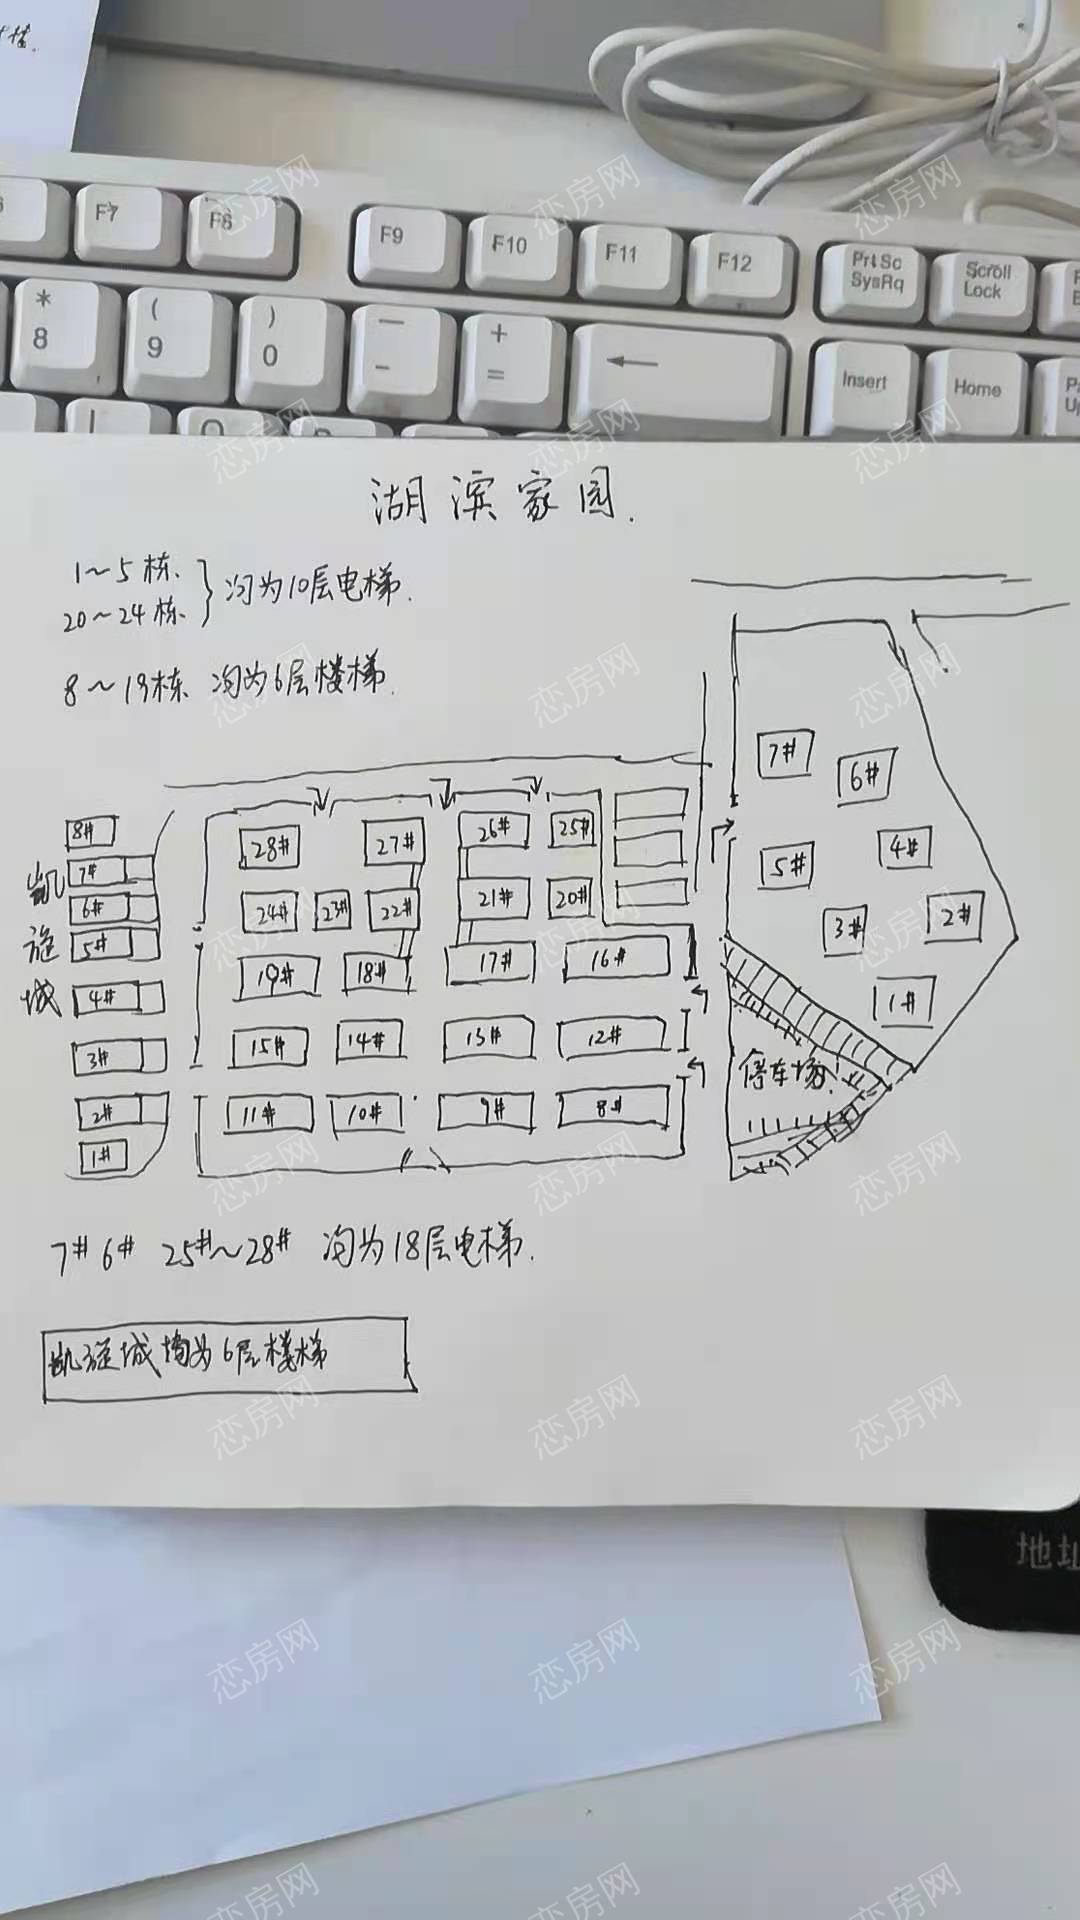 楼.
F7 F8 F9 F10 F11 F12 PrtSc SysRq Scroll Lock
* 8 ( 9 ) 0 — - + = ← Insert Home
湖滨家园.
1~5栋.
20~24栋.
均为10层电梯.
8~19栋 均为6层楼梯.
7#
6#
5#
4#
3#
2#
1#
停车场
28# 27# 26# 25#
24# 23# 22# 21# 20#
19# 18# 17# 16#
15# 14# 13# 12#
11# 10# 9# 8#
凯旋城
8#
7#
6#
5#
4#
3#
2#
1#
7# 6# 25#~28# 均为18层电梯.
凯旋城均为6层楼梯
地址
恋房网